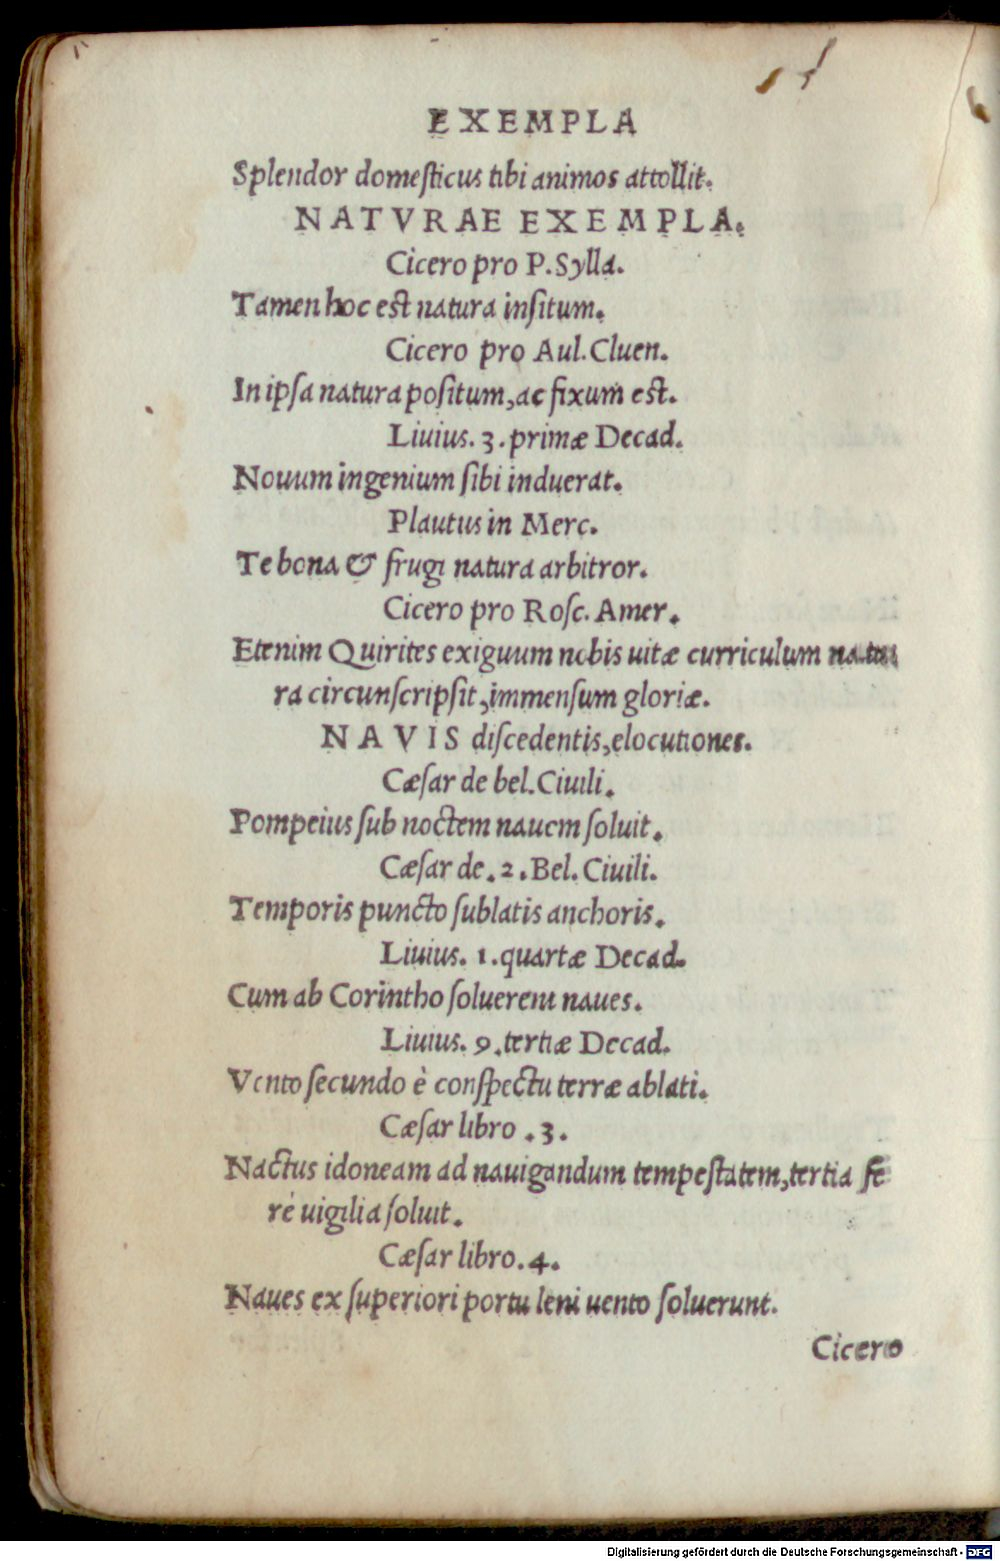 EXEMPLA
Splendor domeſticus tibi animos attollit.
NATVRAE EXEMPLA.
Cicero pro P. Sylla.
Tamen hoc est natura inſitum.
Cicero pro Aul. Cluen.
In ipſa natura poſitum, ac fixum est.
Liuius. 3. primæ Decad.
Nouum ingenium ſibi induerat.
Plautus in Merc.
Te bona & frugi natura arbitror.
Cicero pro Roſc. Amer.
Etenim Quirites exiguum nobis uitæ curriculum natu
ra circunſcripſit, immenſum gloriæ.
NAVIS diſcedentis, elocutiones.
Cæſar de bel. Ciuili.
Pompeius ſub noctem nauem ſoluit.
Cæſar de .2. Bel. Ciuili.
Temporis puncto ſublatis anchoris.
Liuius. 1. quartæ Decad.
Cum ab Corintho ſoluerent naues.
Liuius. 9. tertiæ Decad.
Vento ſecundo è conſpectu terræ ablati.
Cæſar libro .3.
Nactus idoneam ad nauigandum tempeſtatem, tertia fe
rè uigilia ſoluit.
Cæſar libro. 4.
Naues ex ſuperiori portu leni uento ſoluerunt.
Cicero
Digitalisierung gefördert durch die Deutsche Forschungsgemeinschaft - DFG